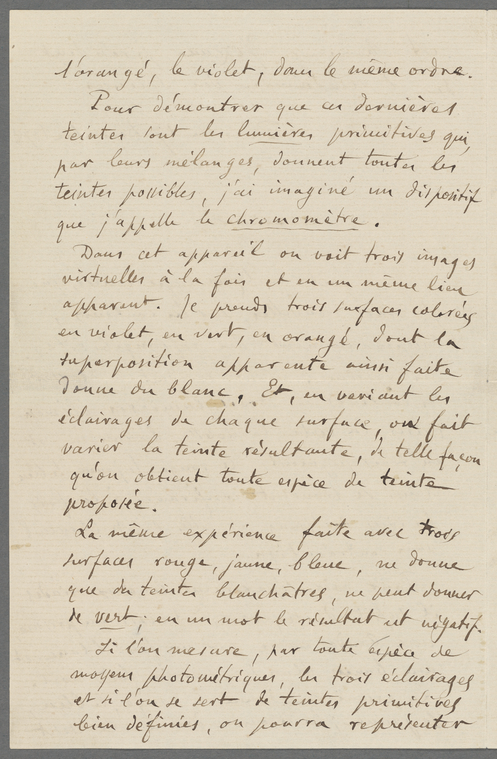 l'orangé, le violet, dans le même ordre.
Pour démontrer que ces dernières
teintes sont les lumières primitives qui,
par leurs mélanges, donnent toutes les
teintes possibles, j'ai imaginé un dispositif
que j'appelle le chromomètre.
Dans cet appareil on voit trois images
virtuelles à la fois et en un même lieu
apparent. Je prends trois surfaces colorées
en violet, en vert, en orangé, dont la
superposition apparente ainsi faite
donne du blanc. Et, en variant les
éclairages de chaque surface, on fait
varier la teinte résultante, de telle façon
qu'on obtient toute espèce de teinte
proposée.
La même expérience faite avec trois
surfaces rouge, jaune, bleue, ne donne
que des teintes blanchâtres, ne peut donner
de vert; en un mot le résultat est négatif.
Si l'on mesure, par toute espèce de
moyens photométriques, les trois éclairages
et si l'on se sert de teintes primitives
bien définies, on pourra représenter